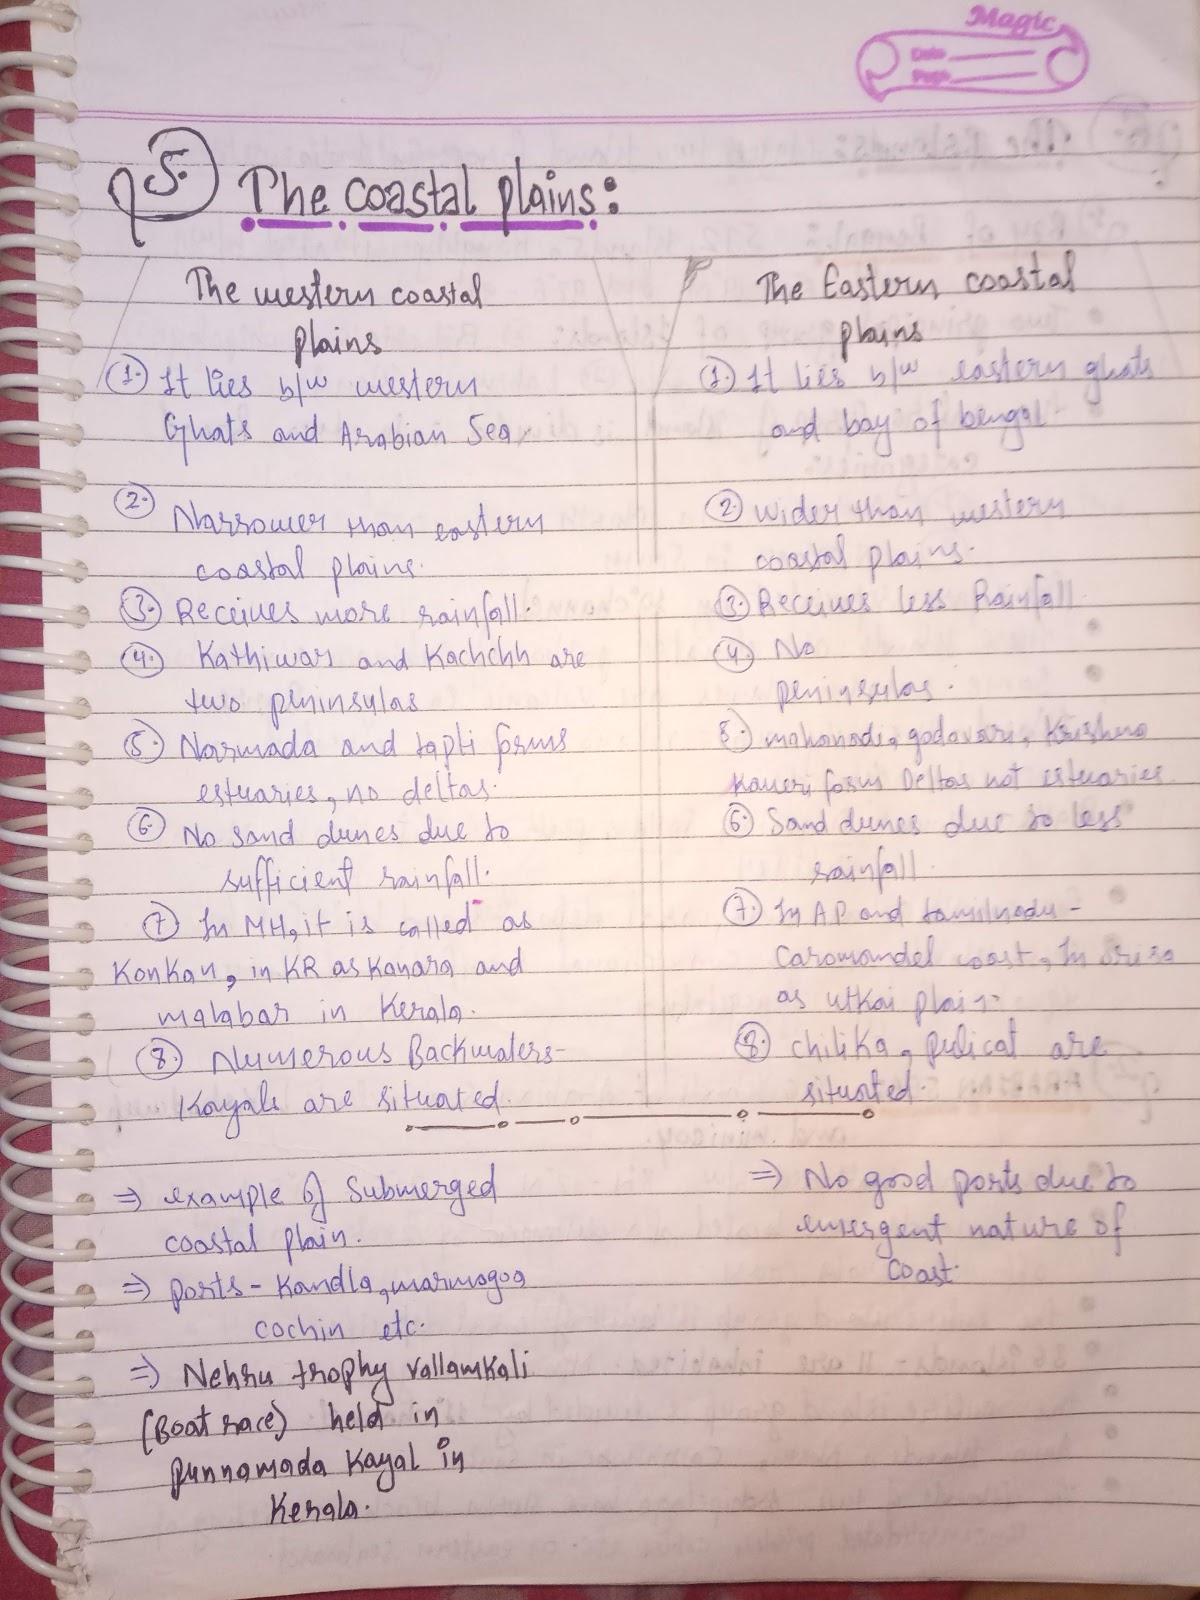 Magic
Date
Page
Q 5. The coastal plains:
The western coastal
plains
1. It lies b/w western
Ghats and Arabian Sea.
2. Narrower than eastern
coastal plains.
3. Receives more rainfall.
4. Kathiwar and Kachchh are
two peninsulas
5. Narmada and tapti forms
estuaries, no deltas.
6. No sand dunes due to
sufficient rainfall.
7. In MH, it is called as
Konkan, in KR as Kanara and
malabar in Kerala.
8. Numerous Backwaters-
Kayals are situated.
⇒ example of Submerged
coastal plain.
⇒ ports - Kandla, marmagoa
cochin etc.
⇒ Nehru trophy vallamkali
(Boat race) held in
punnamada Kayal in
Kerala.
The Eastern coastal
plains
1. It lies b/w eastern ghats
and bay of bengal
2. Wider than western
coastal plains.
3. Receives less Rainfall.
4. No
peninsulas.
5. mahanadi, godavari, Krishna
Kaveri form Deltas not estuaries
6. Sand dunes due to less
rainfall.
7. In AP and tamilnadu -
Caromandel coast, In orissa
as utkal plain.
8. chilika, pulicat are
situated.
⇒ No good ports due to
emergent nature of
coast.